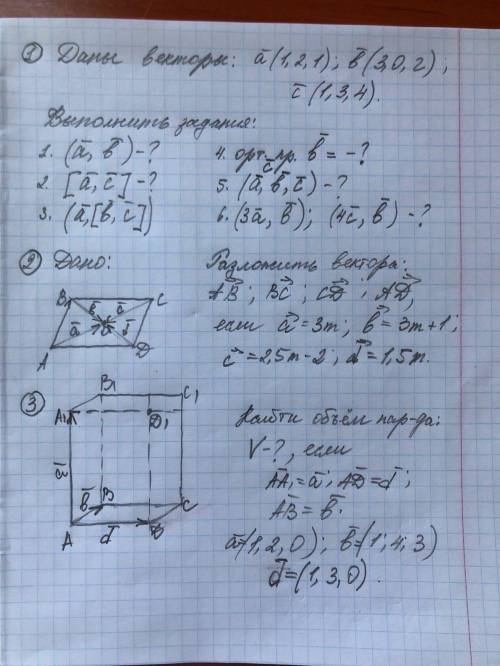 ① Даны векторы: ā(1,2,1); b̄(3,0,2);
c̄(1,3,4).
Выполнить задания:
1. (ā, b̄) - ?
2. [ā, c̄] - ?
3. (ā,[b̄, c̄])
4. орт. пр. b̄ = - ?
c̄
5. (ā, b̄, c̄) - ?
6. (3ā, b̄); (4c̄, b̄) - ?
② Дано:
B C
A D
Разложить вектора:
AB; BC; CD; AD,
если a = 3m; b = 3m+1;
c = 2,5m-2; d = 1,5m.
③
B₁ C₁
A₁ D₁
ā
b̄ B C
A d̄ D
Найти объём пар-да:
V - ?, если
AA₁ = ā; AD = d̄;
AB = b̄.
ā=(1,2,0); b̄=(1;4;3)
d̄=(1,3,0).